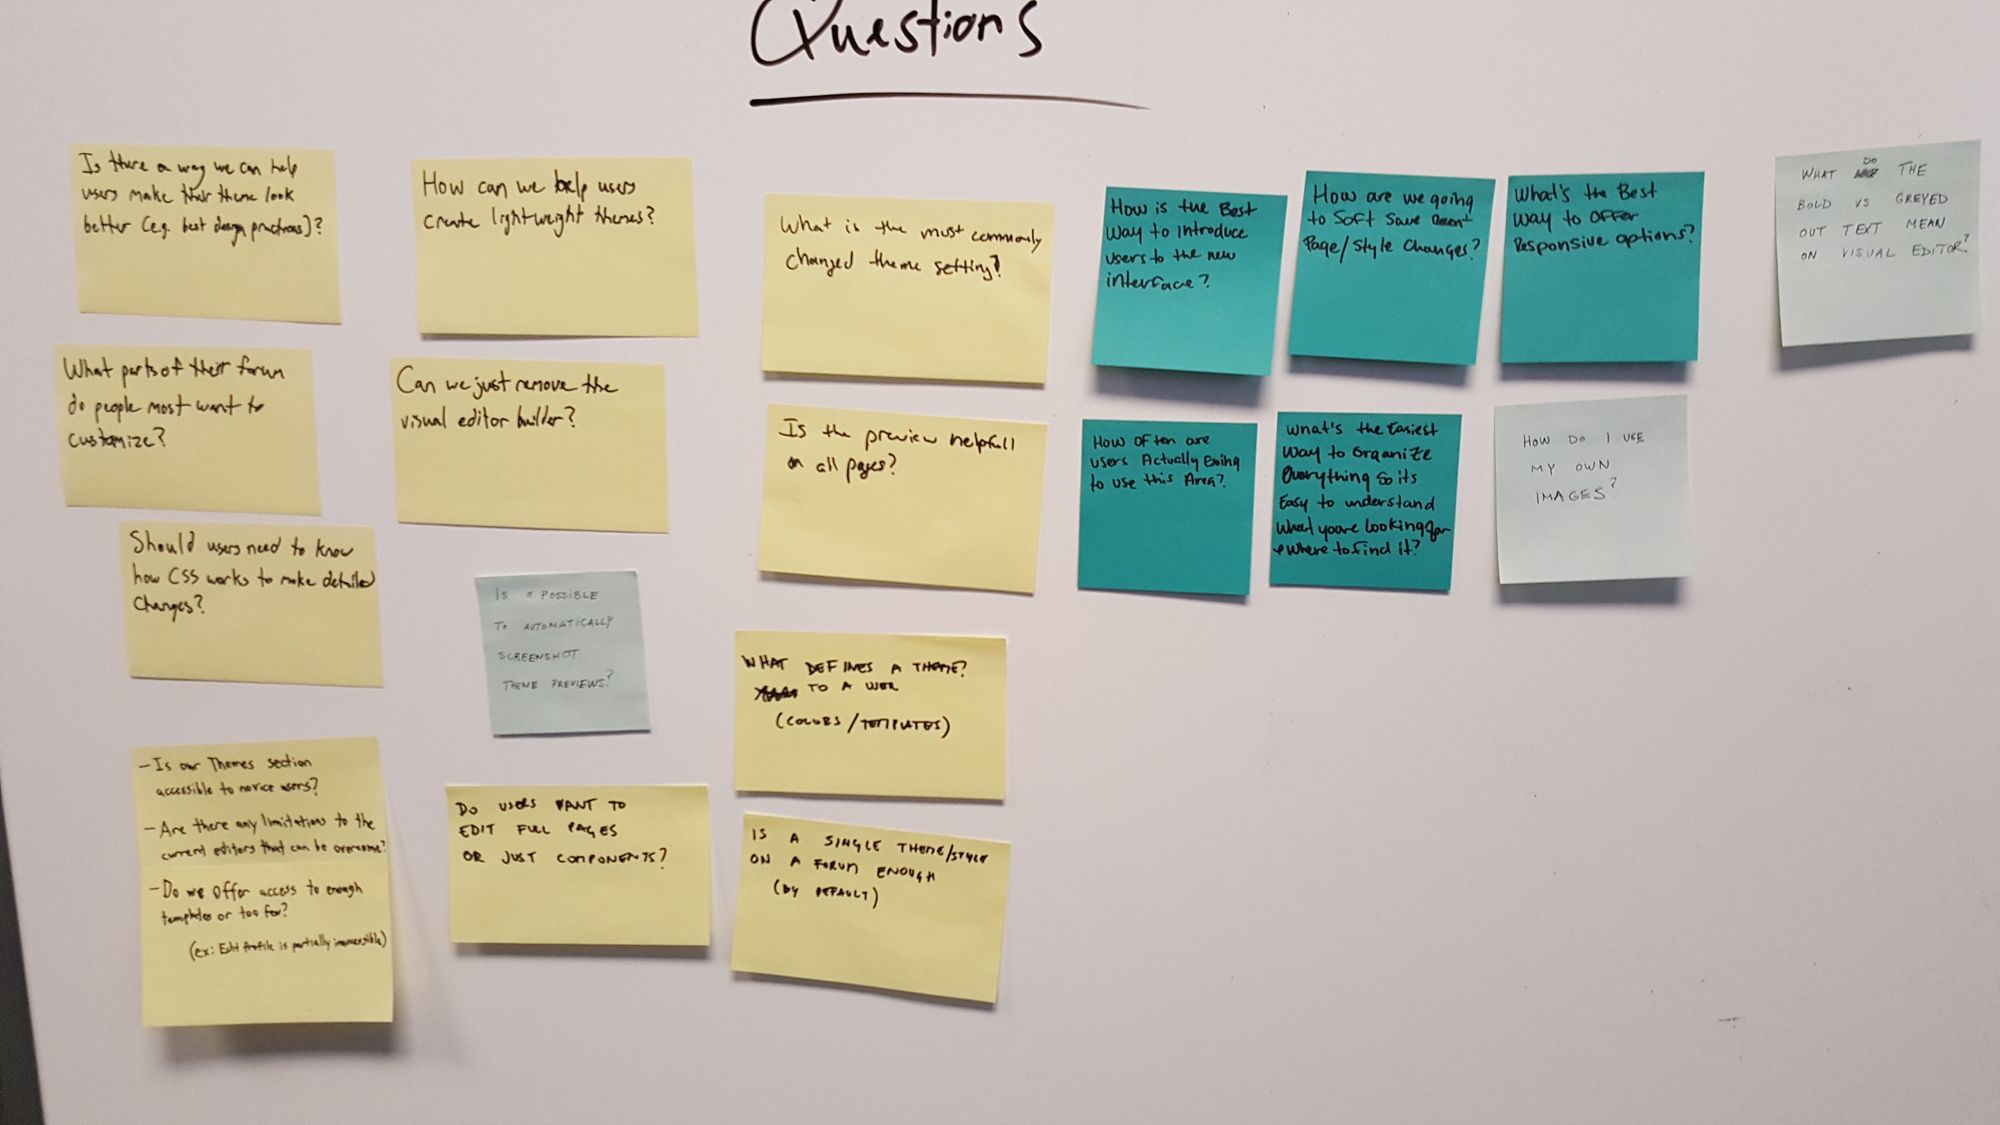 Questions
Is there a way we can help
users make their theme look
better (e.g. best design practices)?
How can we help users
create lightweight themes?
What is the most commonly
changed theme setting?
How is the Best
way to introduce
users to the new
interface?
How are we going
to Soft Save
Page/Style Changes?
What's the Best
way to offer
Responsive options?
WHAT DO THE
BOLD VS GREYED
OUT TEXT MEAN
ON VISUAL EDITOR?
What parts of their forum
do people most want to
customize?
Can we just remove the
visual editor builder?
Is the preview helpfull
on all pages?
How often are
users Actually Going
to use this Area?
What's the Easiest
way to organize
Everything so its
Easy to understand
What youre looking for
& where to find it?
HOW DO I USE
MY OWN
IMAGES?
Should users need to know
how CSS works to make detailed
changes?
IS IT POSSIBLE
TO AUTOMATICALLY
SCREENSHOT
THEME PREVIEWS?
WHAT DEFINES A THEME?
TO A USER
(COLORS/TEMPLATES)
- Is our Themes section
accessible to novice users?
- Are there any limitations to the
current editors that can be overcome?
- Do we offer access to enough
templates or too few?
(ex: Edit Profile is partially inaccessible)
DO USERS WANT TO
EDIT FULL PAGES
OR JUST COMPONENTS?
IS A SINGLE THEME/STYLE
ON A FORUM ENOUGH
(BY DEFAULT)